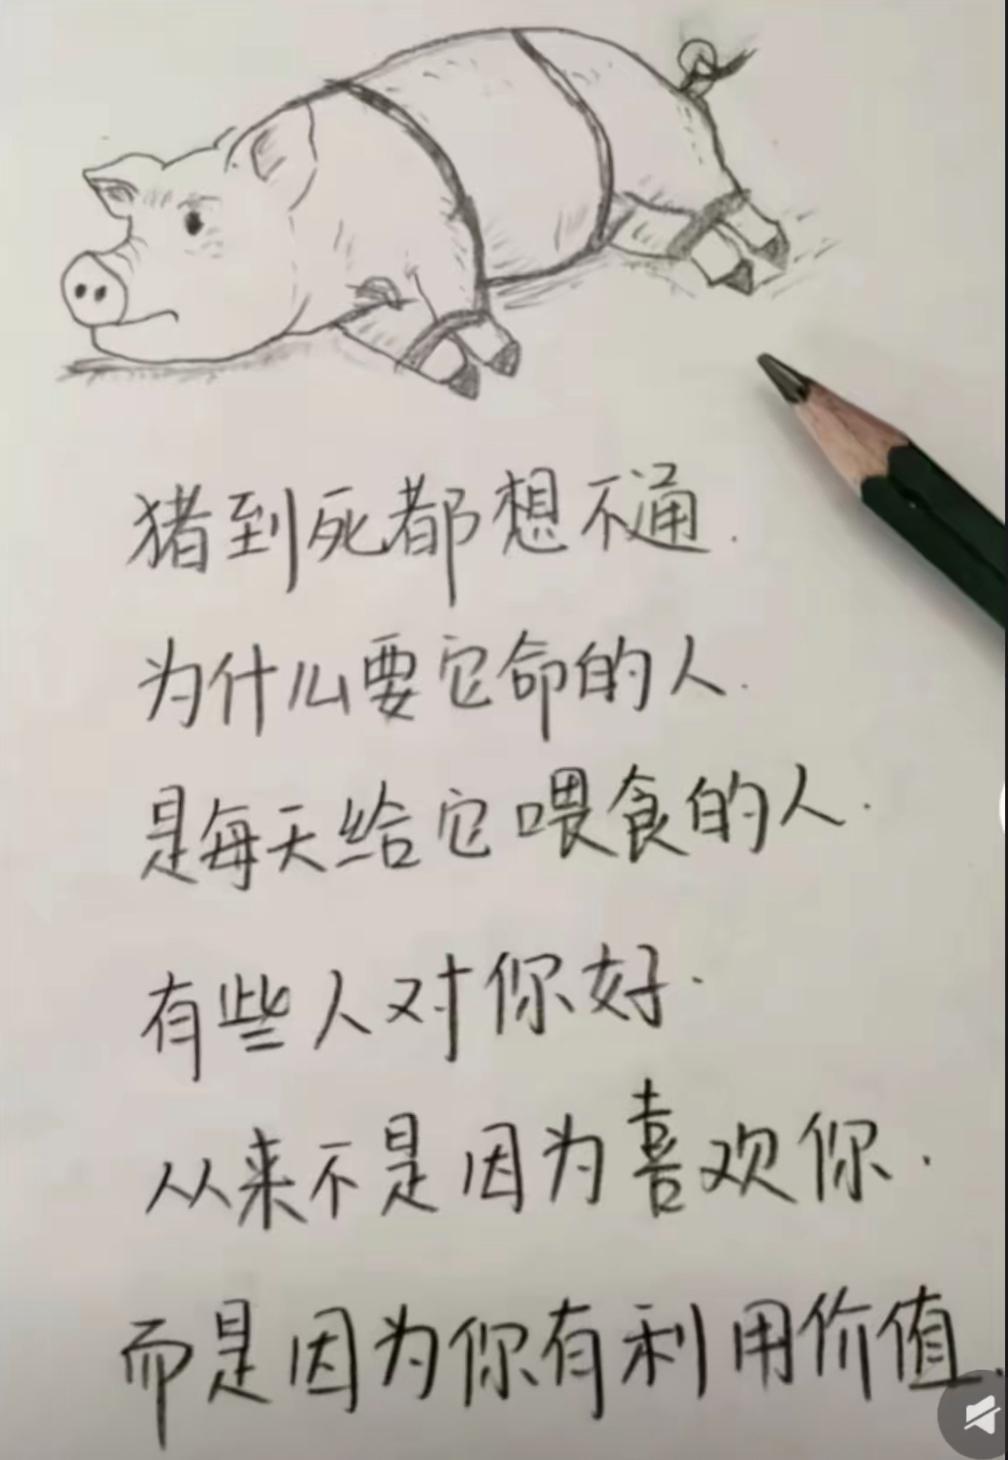 猪到死都想不通.
为什么要它命的人.
是每天给它喂食的人.
有些人对你好.
从来不是因为喜欢你.
而是因为你有利用价值.